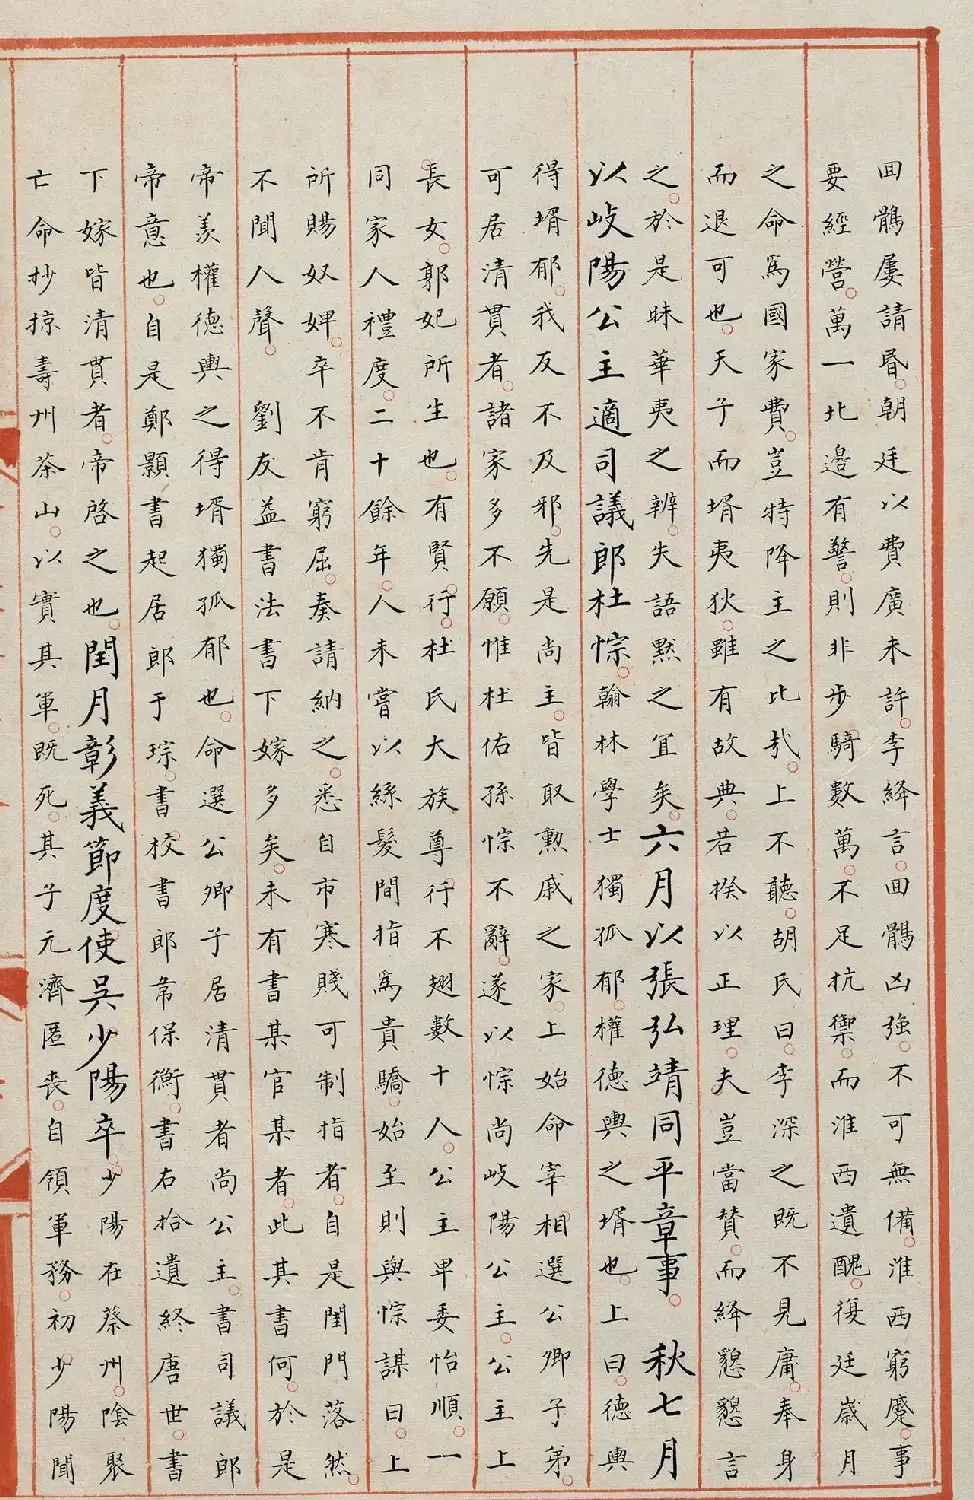 回鶻屢請昏。朝廷以費廣未許。李絳言。回鶻凶強。不可無備。淮西窮蹙。事
要經營。萬一北邊有警。則非步騎數萬。不足抗禦。而淮西遺醜。復廷歲月
之命為國家費。豈特降主之比哉。上不聽。胡氏曰。李深之既不見庸。奉身
而退可也。天子而壻夷狄。雖有故典。若揆以正理。夫豈當贊。而絳懇懇言
之。於是昧華夷之辨。失語默之宜矣。六月以張弘靖同平章事。 秋七月
以岐陽公主適司議郎杜悰。翰林學士獨孤郁。權德輿之壻也。上曰。德輿
得壻郁。我反不及邪。先是尚主。皆取勲戚之家。上始命宰相選公卿子弟。
可居清貫者。諸家多不願。惟杜佑孫悰不辭。遂以悰尚岐陽公主。公主上
長女。郭妃所生也。有賢行。杜氏大族尊行不翅數十人。公主卑委怡順。一
同家人禮度。二十餘年。人未嘗以絲髮間指為貴驕。始至則與悰謀曰。上
所賜奴婢。卒不肯窮屈。奏請納之。悉自市寒賤可制指者。自是閨門落然。
不聞人聲。 劉友益書法書下嫁多矣。未有書某官某者。此其書何。於是
帝羨權德輿之得壻獨孤郁也。命選公卿子居清貫者尚公主。書司議郎
帝意也。自是鄭顥書起居郎于琮。書校書郎韋保衡。書右拾遺終唐世。書
下嫁皆清貫者。帝啓之也。閏月彰義節度使吳少陽卒。少陽在蔡州。陰聚
亡命抄掠壽州茶山。以實其軍。既死。其子元濟匿喪。自領軍務。初少陽聞